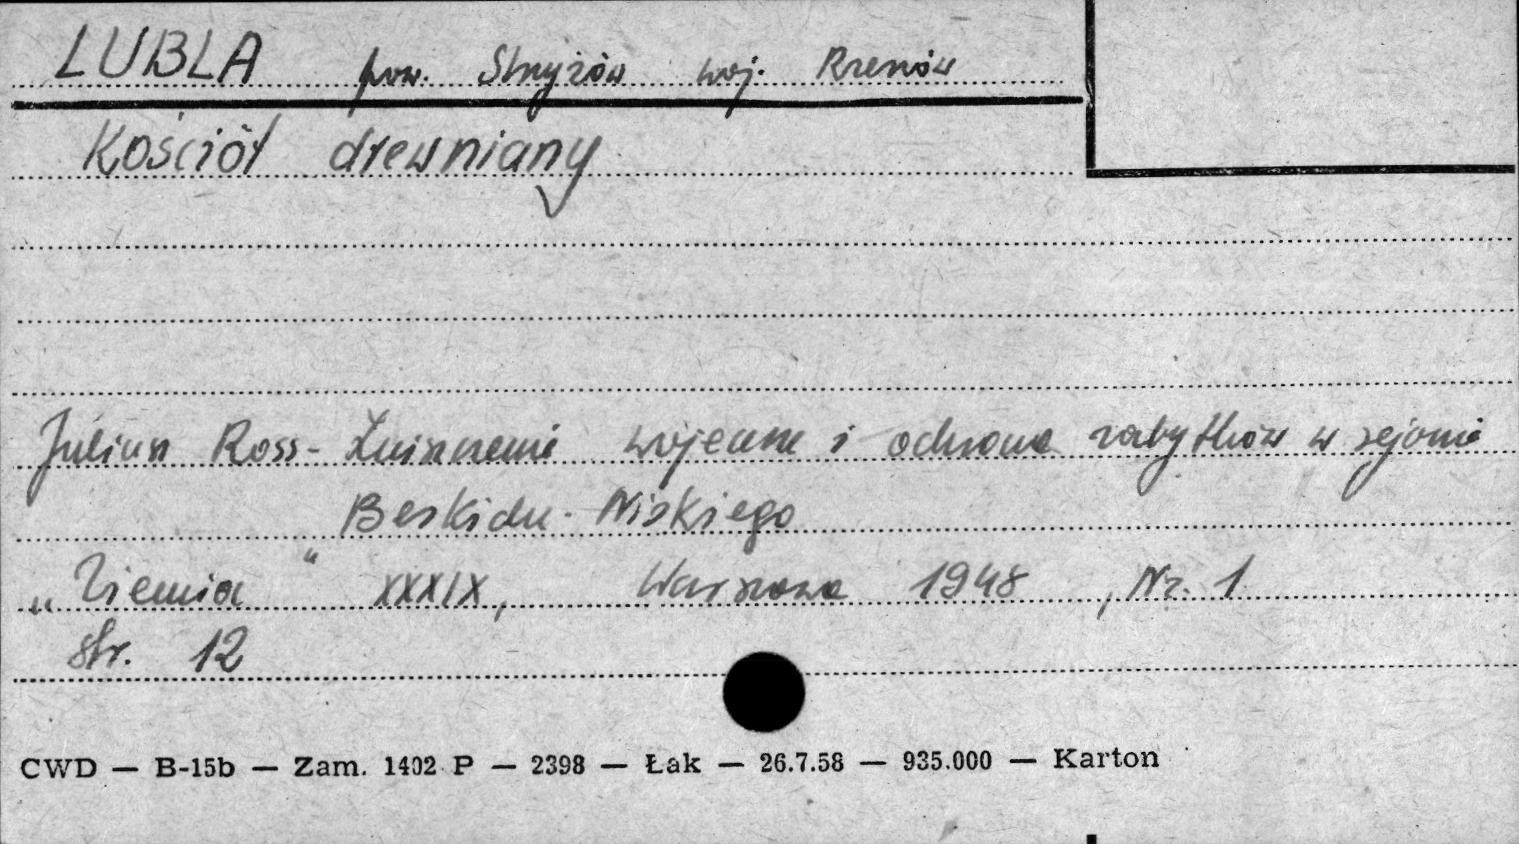 LUBLA pow. Strzyżów woj. Rzeszów
Kościół drewniany
Juliusz Ross - Zniszczenia wojenne i ochrona zabytków w rejonie
Beskidu Niskiego
„Ziemia" XXXIX, Warszawa 1948, Nr. 1
str. 12
CWD — B-15b — Zam. 1402 P — 2398 — Łak — 26.7.58 — 935.000 — Karton